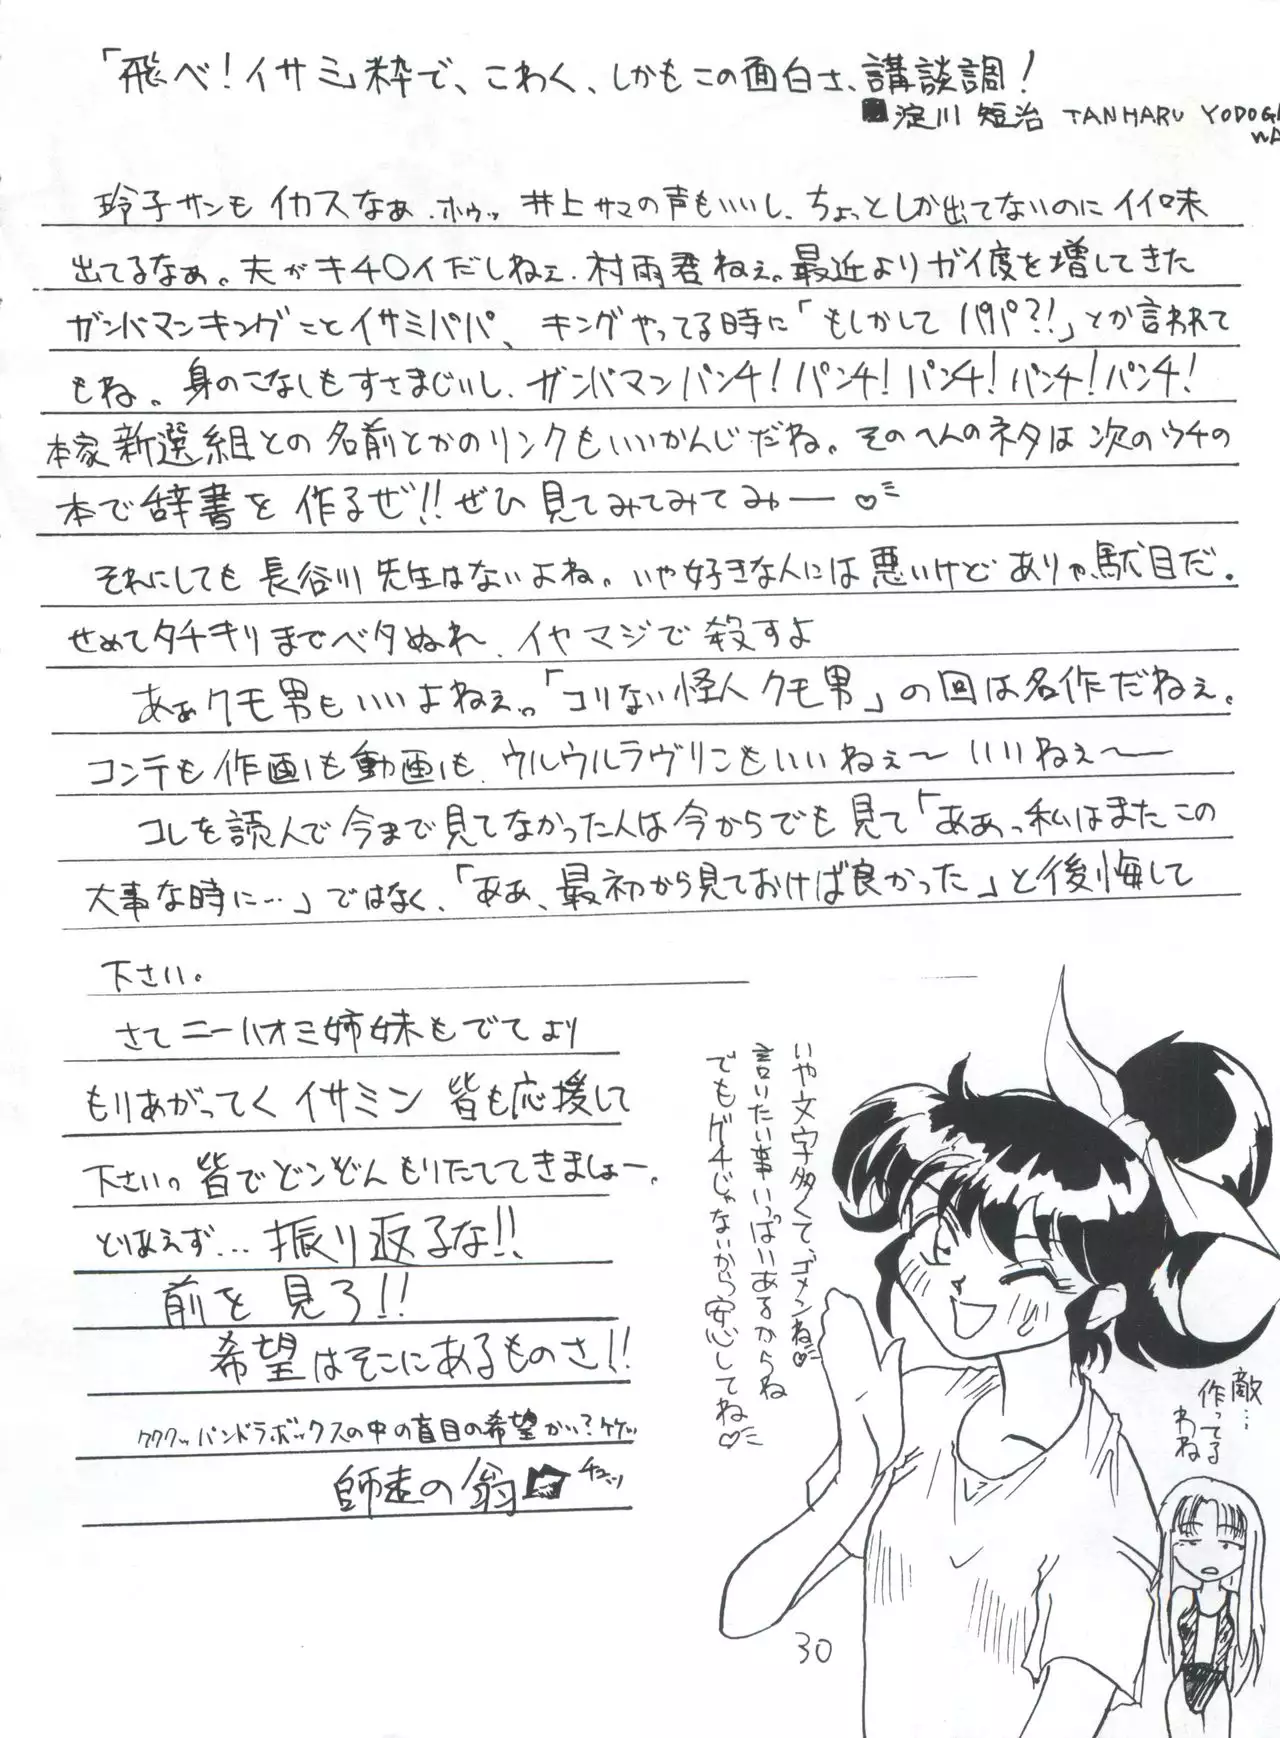 「飛べ!イサミ」粋で、こわく、しかもこの面白さ、講談調!
淀川 短治 TANHARU YODOGAWA
玲子サンもイカスなぁ、ホウッ 井上サマの声もいいし、ちょっとしか出てないのにイイ味
出てるなぁ。夫がキチ○イだしねぇ、村雨君ねぇ。最近よりガイ度を増してきた
ガンバマンキングことイサミパパ、キングやってる時に「もしかしてパパ?!」とか言われて
もね。身のこなしもすさまじいし、ガンバマンパンチ!パンチ!パンチ!パンチ!パンチ!
本家新選組との名前とかのリンクもいいかんじだね。そのへんのネタは次のウチの
本で辞書を作るぜ!!ぜひ見てみてみてみゅー♡
それにしても長谷川先生はないよね。いや好きな人には悪いけどありゃ駄目だ。
せめてタチキリまでベタぬれ、イヤマジで殺すよ
あぁクモ男もいいよねぇ。「コリない怪人クモ男」の回は名作だねぇ。
コンテも作画も動画も、ウルウルラヴリこもいいねぇ〜いいねぇ〜
コレを読んで今まで見てなかった人は今からでも見て「ああっ私はまたこの
大事な時に…」ではなく、「ああ、最初から見ておけば良かった」と後悔して
下さい。
さてニーハオミ姉妹もでてより
もりあがってくイサミン 皆も応援して
下さい。皆でどンどんもりたててきましょー。
とりあえず…振り返るな!!
前を見ろ!!
希望はそこにあるものさ!!
ククククッパンドラボックスの中の盲目の希望かい?ケケッ
師走の翁 チュンッ
いや文字多くて、ゴメンね♡
言いたい事いっぱいあるからね
でもグチじゃないから安心してね♡
敵…
作ってる
わね
30